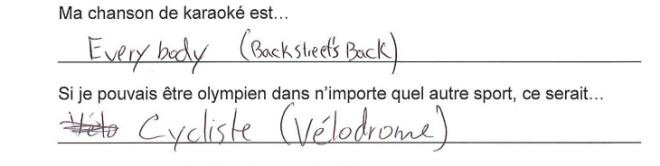 Ma chanson de karaoké est...
Everybody (Backstreet's Back)
Si je pouvais être olympien dans n'importe quel autre sport, ce serait...
Vélo Cycliste (Vélodrome)